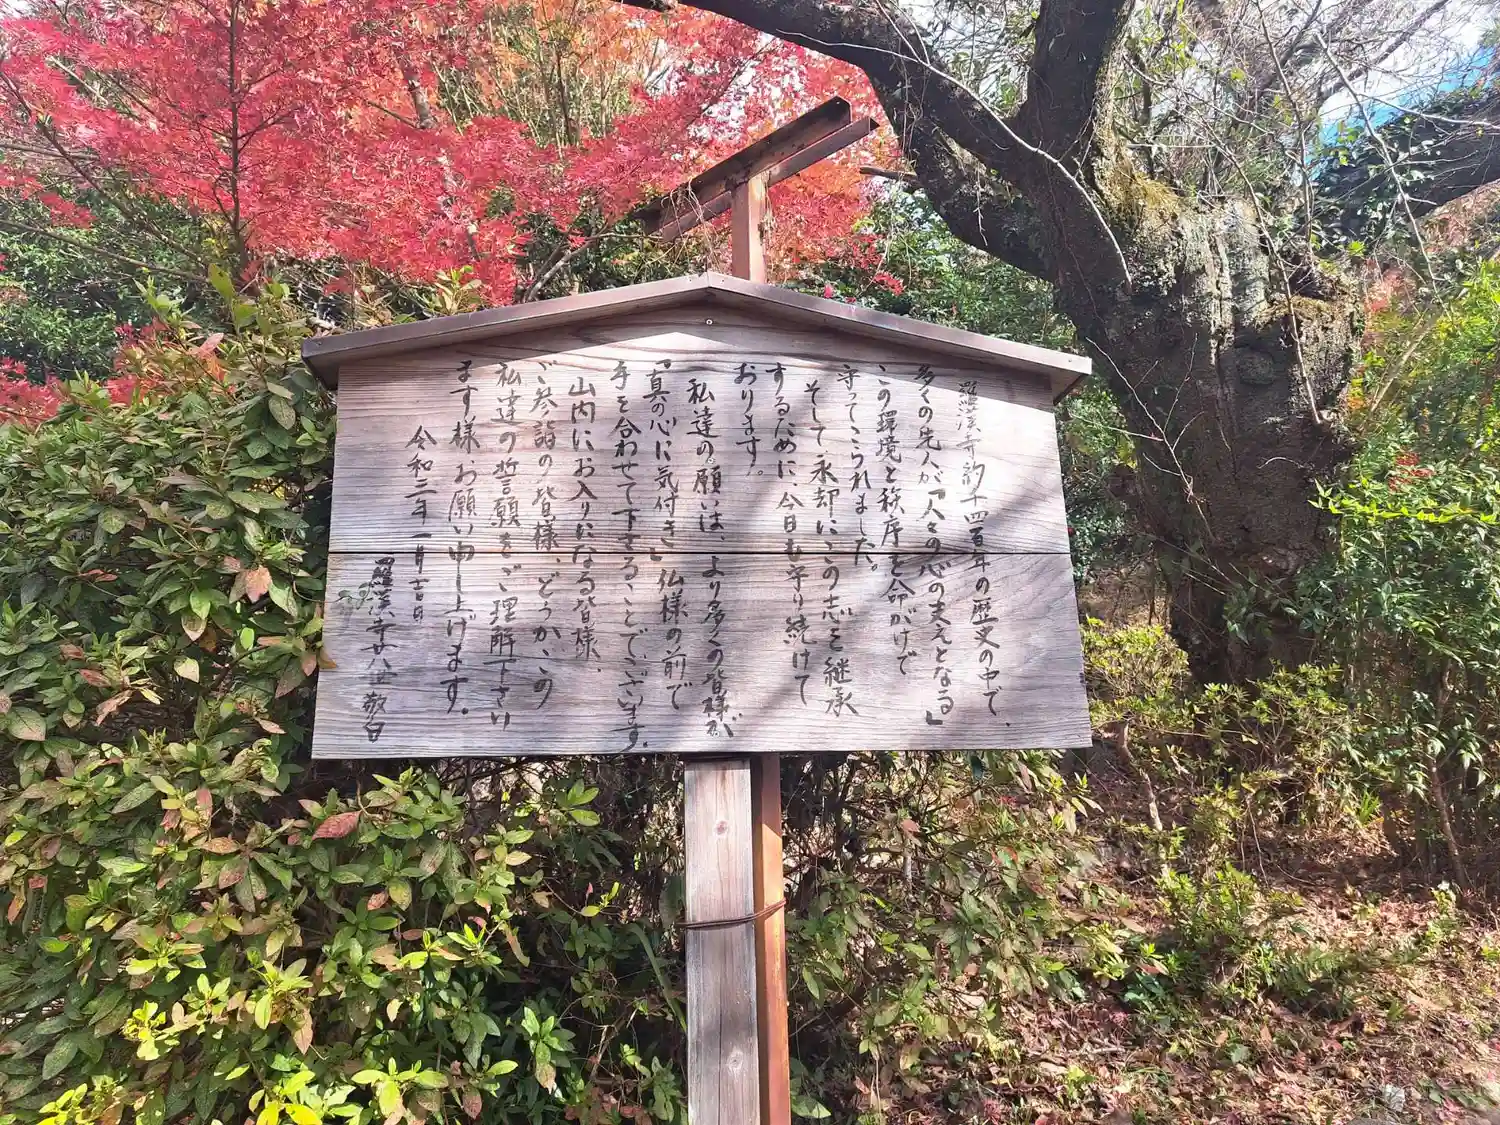 羅漢寺約千四百年の歴史の中で、
多くの先人が「人々の心の支えとなる」
この環境と秩序を命がけで
守ってこられました。
そして、永却にこの志を継承
するために、今日も守り続けて
おります。
私達の願いは、より多くの皆様が
「真の心に気付き」仏様の前で
手を合わせて下さることでございます。
山内にお入りになる皆様、
ご参詣の皆様、どうかこの
私達の誓願をご理解下さい
ます様お願い申し上げます。
令和三年一月十一日
羅漢寺廿八世敬白